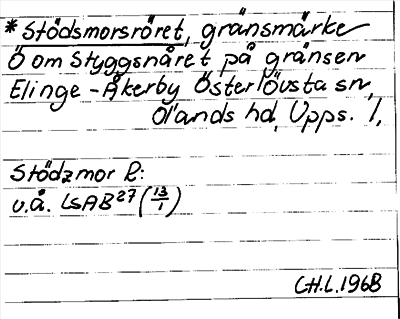 * Stödsmorsröret, gränsmärke
Ö om Styggsnåret på gränsen
Elinge - Åkerby Österlövsta sn,
Olands hd, Upps. l,
Stödzmor R:
u.å. LsAB27 (13/1)
C.H.L. 1968